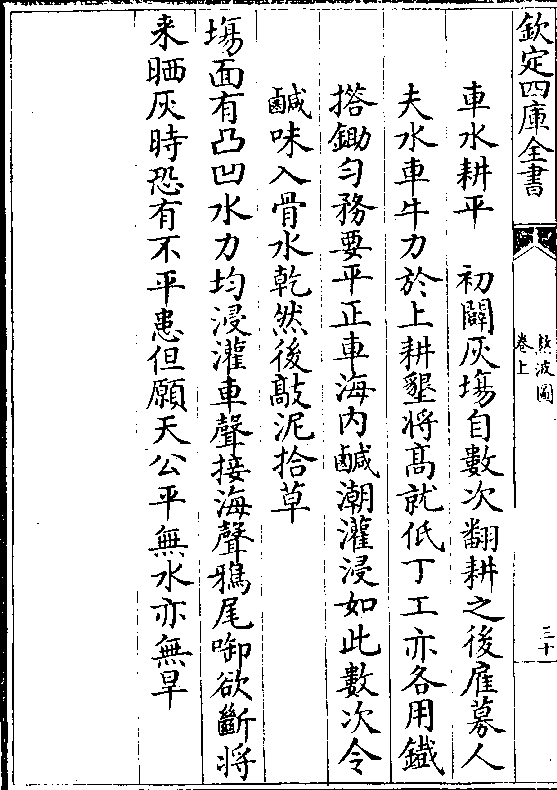 欽定四庫全書
熬波圖
卷上
三十
車水耕平　初闢灰塲自數次翻耕之後雇募人
夫水車牛力於上耕墾將髙就低丁工亦各用鐵
搭鋤匀務要平正車海内鹹潮灌浸如此數次令
鹹味入骨水乾然後敲泥拾草
塲面有凸凹水力均浸灌車聲接海聲鴉尾啣欲斷將
来晒灰時恐有不平患但願天公平無水亦無旱